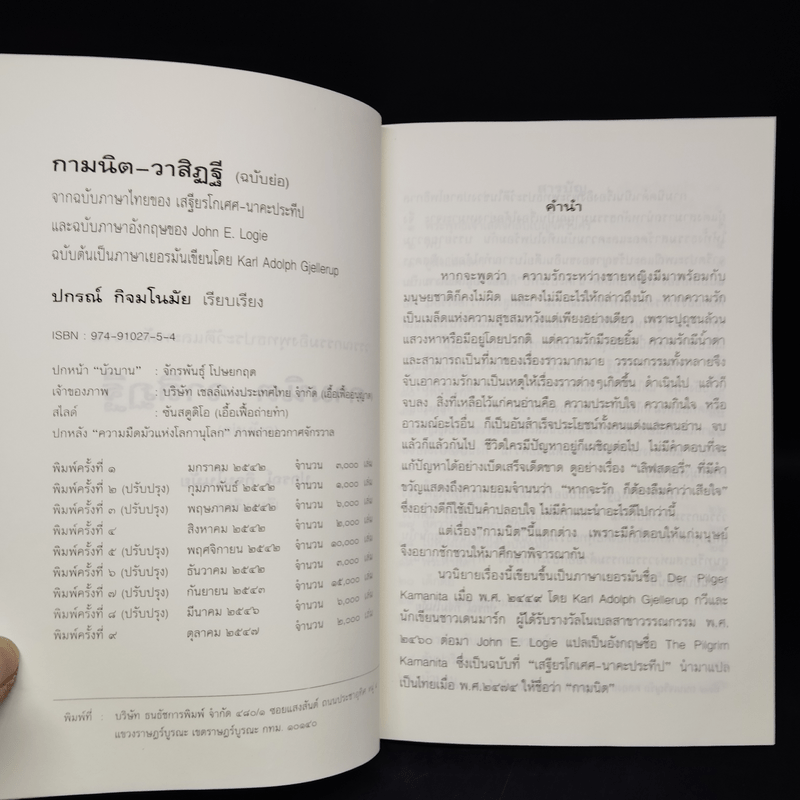 กามนิต-วาสิฏฐี (ฉบับย่อ)
จากฉบับภาษาไทยของ เสฐียรโกเศศ-นาคะประทีป
และฉบับภาษาอังกฤษของ John E. Logie
ฉบับต้นเป็นภาษาเยอรมันเขียนโดย Karl Adolph Gjellerup
ปกรณ์ กิจมโนมัย เรียบเรียง
ISBN : 974-91027-5-4
ปกหน้า "บัวบาน" : จักรพันธุ์ โปษยกฤต
เจ้าของภาพ : บริษัท เชลล์แห่งประเทศไทย จำกัด (เอื้อเฟื้ออนุญาต)
สไลด์ : ซันสตูดิโอ (เอื้อเฟื้อถ่ายทำ)
ปกหลัง "ความมืดมัวแห่งโลกานุโลก" ภาพถ่ายอวกาศจักรวาล
พิมพ์ครั้งที่ ๑ มกราคม ๒๕๔๒ จำนวน ๓,๐๐๐ เล่ม
พิมพ์ครั้งที่ ๒ (ปรับปรุง) กุมภาพันธ์ ๒๕๔๒ จำนวน ๑,๐๐๐ เล่ม
พิมพ์ครั้งที่ ๓ (ปรับปรุง) พฤษภาคม ๒๕๔๒ จำนวน ๖,๐๐๐ เล่ม
พิมพ์ครั้งที่ ๔ สิงหาคม ๒๕๔๒ จำนวน ๒,๐๐๐ เล่ม
พิมพ์ครั้งที่ ๕ (ปรับปรุง) พฤศจิกายน ๒๕๔๒ จำนวน ๑๐,๐๐๐ เล่ม
พิมพ์ครั้งที่ ๖ (ปรับปรุง) ธันวาคม ๒๕๔๒ จำนวน ๓,๐๐๐ เล่ม
พิมพ์ครั้งที่ ๗ (ปรับปรุง) กันยายน ๒๕๔๓ จำนวน ๑๕,๐๐๐ เล่ม
พิมพ์ครั้งที่ ๘ (ปรับปรุง) มีนาคม ๒๕๔๖ จำนวน ๖,๐๐๐ เล่ม
พิมพ์ครั้งที่ ๙ ตุลาคม ๒๕๔๗ จำนวน ๒,๐๐๐ เล่ม
พิมพ์ที่ : บริษัท ธนธัชการพิมพ์ จำกัด ๔๘๐/๑ ซอยแสงสันต์ ถนนประชาอุทิศ
แขวงราษฎร์บูรณะ เขตราษฎร์บูรณะ กทม. ๑๐๑๔๐
คำนำ
หากจะพูดว่า ความรักระหว่างชายหญิงมีมาพร้อมกับ
มนุษยชาติก็คงไม่ผิด และคงไม่มีอะไรให้กล่าวถึงนัก หากความรัก
เป็นเมล็ดแห่งความสุขสมหวังแต่เพียงอย่างเดียว เพราะปุถุชนล้วน
แสวงหาหรือมีอยู่โดยปรกติ แต่ความรักมีรอยยิ้ม ความรักมีน้ำตา
และสามารถเป็นที่มาของเรื่องราวมากมาย วรรณกรรมทั้งหลายจึง
จับเอาความรักมาเป็นเหตุให้เรื่องราวต่างๆเกิดขึ้น ดำเนินไป แล้วก็
จบลง สิ่งที่เหลือไว้แก่คนอ่านคือ ความประทับใจ ความกินใจ หรือ
อารมณ์อะไรอื่น ก็เป็นอันสำเร็จประโยชน์ทั้งคนแต่งและคนอ่าน จบ
แล้วก็แล้วกันไป ชีวิตใครมีปัญหาอยู่ก็เผชิญต่อไป ไม่มีคำตอบที่จะ
แก้ปัญหาได้อย่างเบ็ดเสร็จเด็ดขาด ดูอย่างเรื่อง "เลิฟสตอรี่" ที่มีคำ
ขวัญแสดงถึงความยอมจำนนว่า "หากจะรัก ก็ต้องลืมคำว่าเสียใจ"
ซึ่งอย่างดีก็ใช้เป็นคำปลอบใจ ไม่มีคำแนะนำอะไรดีไปกว่านี้
แต่เรื่อง"กามนิต"นี้แตกต่าง เพราะมีคำตอบให้แก่มนุษย์
จึงอยากชักชวนให้มาศึกษาพิจารณากัน
นวนิยายเรื่องนี้เขียนขึ้นเป็นภาษาเยอรมันชื่อ Der Pilger
Kamanita เมื่อ พ.ศ. ๒๔๔๙ โดย Karl Adolph Gjellerup กวีและ
นักเขียนชาวเดนมาร์ก ผู้ได้รับรางวัลโนเบลสาขาวรรณกรรม พ.ศ.
๒๔๖๐ ต่อมา John E. Logie แปลเป็นอังกฤษชื่อ The Pilgrim
Kamanita ซึ่งเป็นฉบับที่ "เสฐียรโกเศศ-นาคะประทีป" นำมาแปล
เป็นไทยเมื่อ พ.ศ.๒๔๗๔ ให้ชื่อว่า "กามนิต"